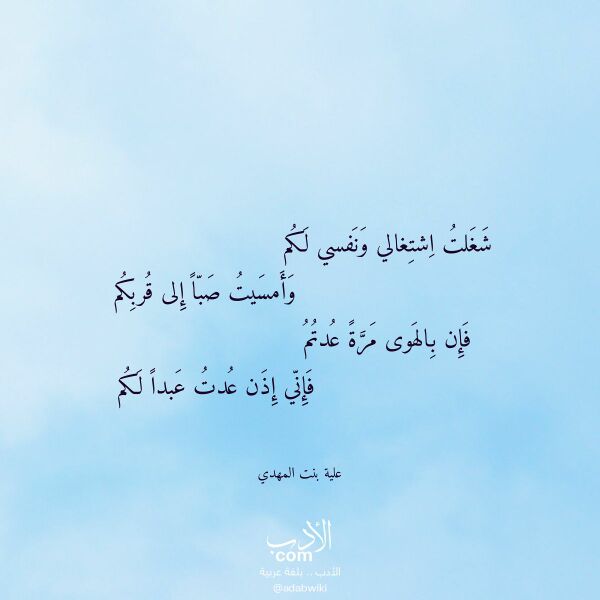 شَغَلتُ اِشتِغالي وَنَفسي لَكُم
وَأَمسَيتُ صَبّاً إِلى قُربِكُم
فَإِن بِالهَوى مَرَّةً عُدتُمُ
فَإِنّي إِذَن عُدتُ عَبداً لَكُم
علية بنت المهدي
الأدب
com
الأدب .. بلغة عربية
@adabwiki